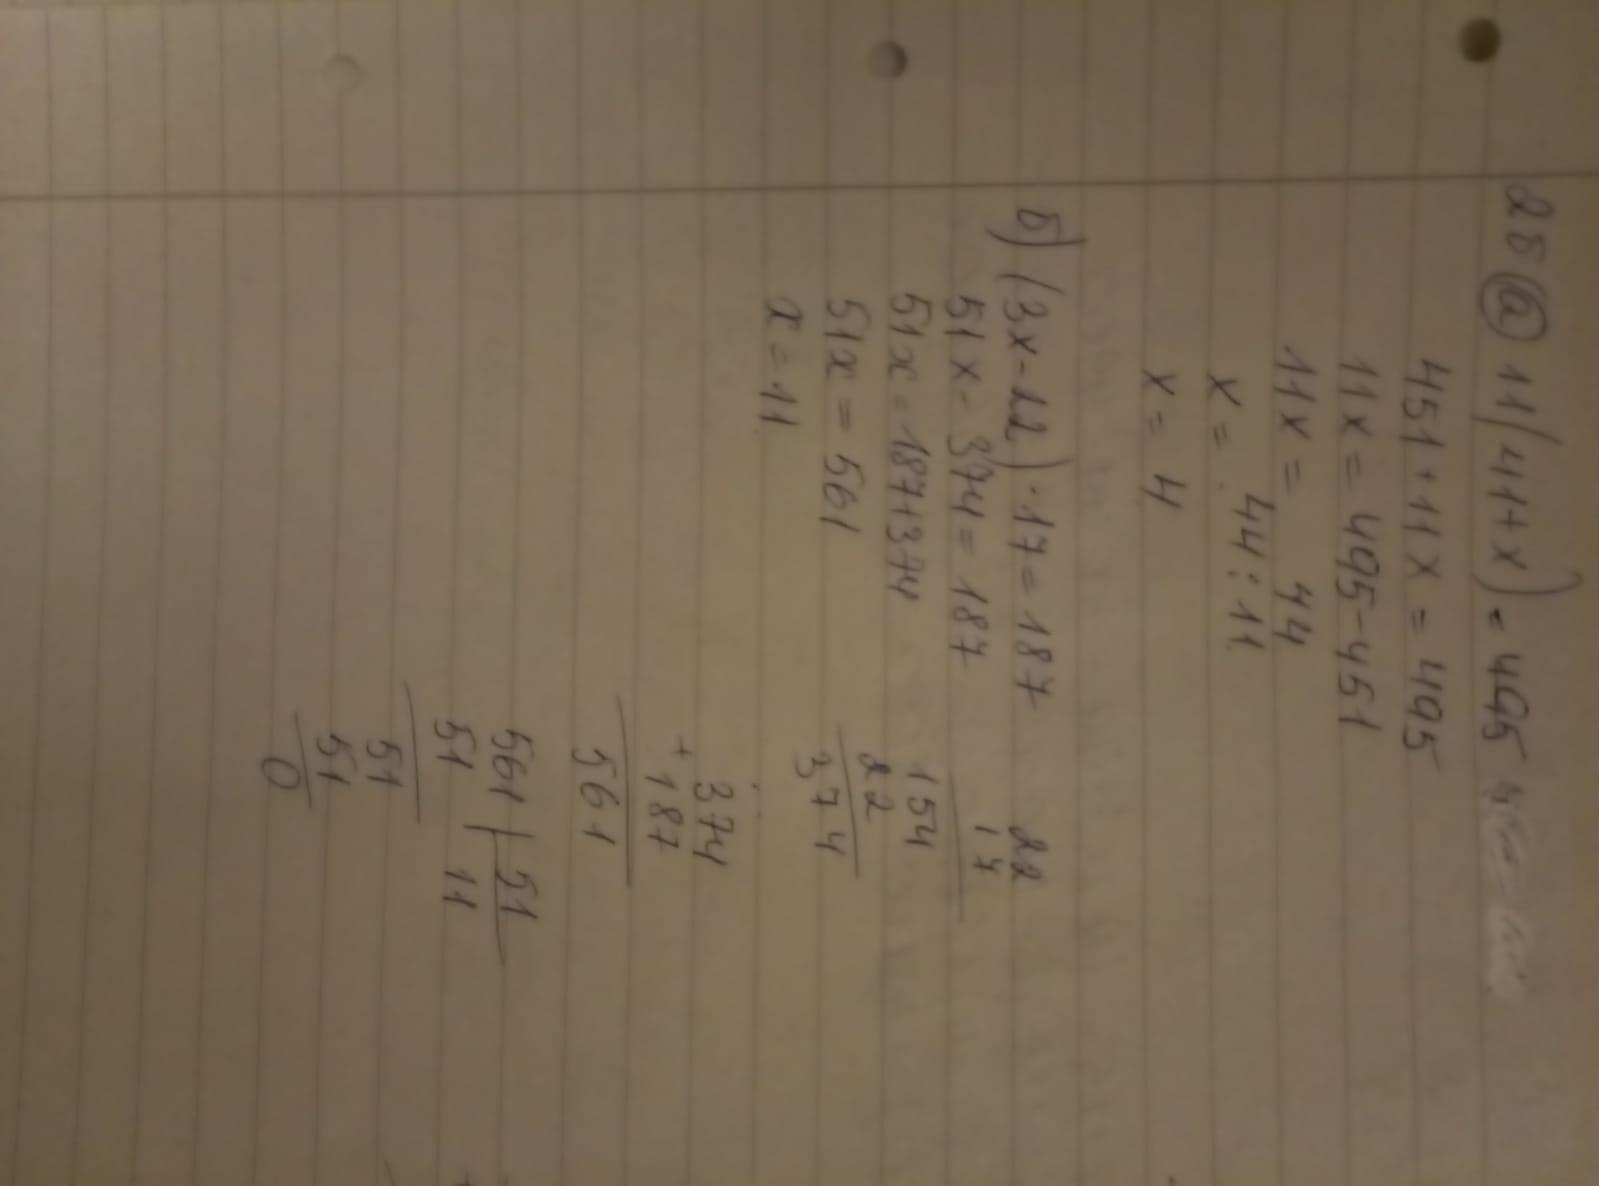 28 а) 11(41+x) = 495
451+11x = 495
11x = 495-451
11x = 44
x = 44:11
x = 4
б) (3x-22)·17=187
51x-374=187
51x=187+374
51x=561
x=11
22
17
154
22
374
374
+187
561
561|51
51 11
51
51
0